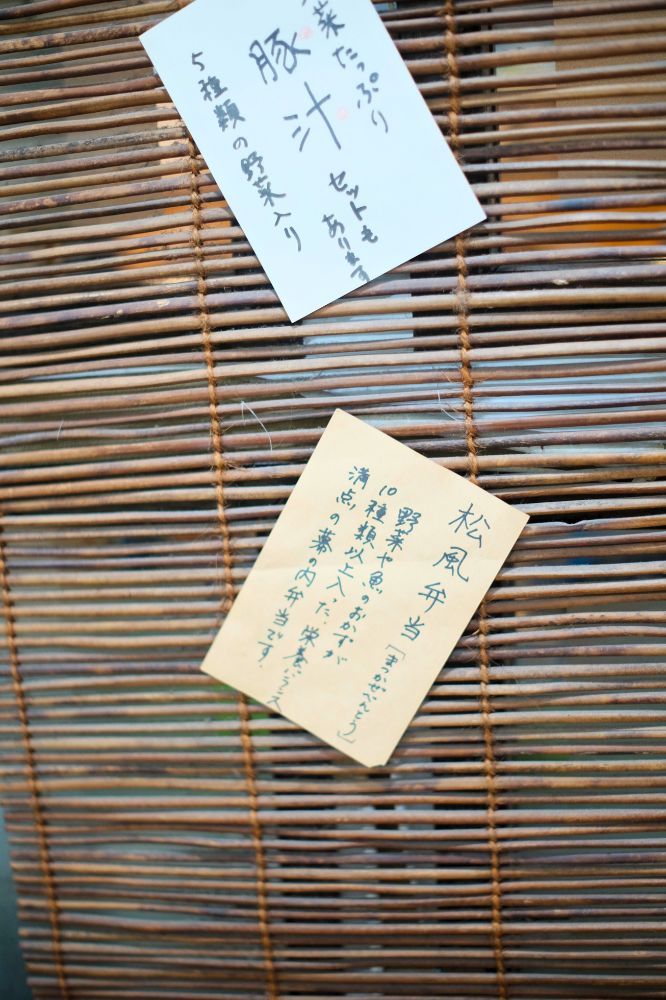 菜たっぷり
豚汁
セットも
あります
5種類の野菜入り
松風弁当「まつかぜべんとう」
野菜や魚のおかずが
10種類以上入った、栄養バランス
満点の幕の内弁当です。